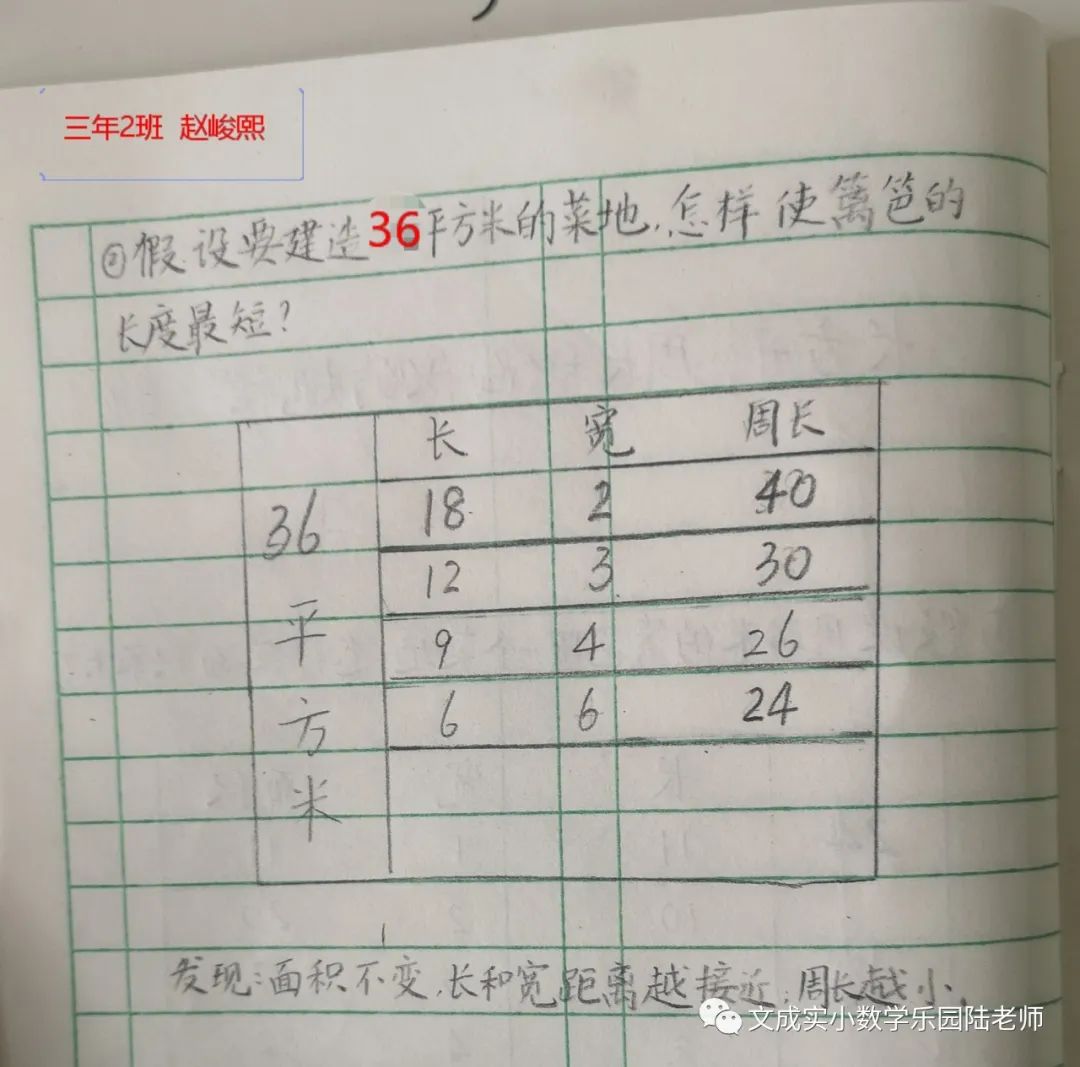 三年2班 赵峻熙
②假设要建造36平方米的菜地,怎样使篱笆的
长度最短?
长 宽 周长
36平方米
18 2 40
12 3 30
9 4 26
6 6 24
发现:面积不变,长和宽距离越接近,周长越小.
文成实小数学乐园陆老师